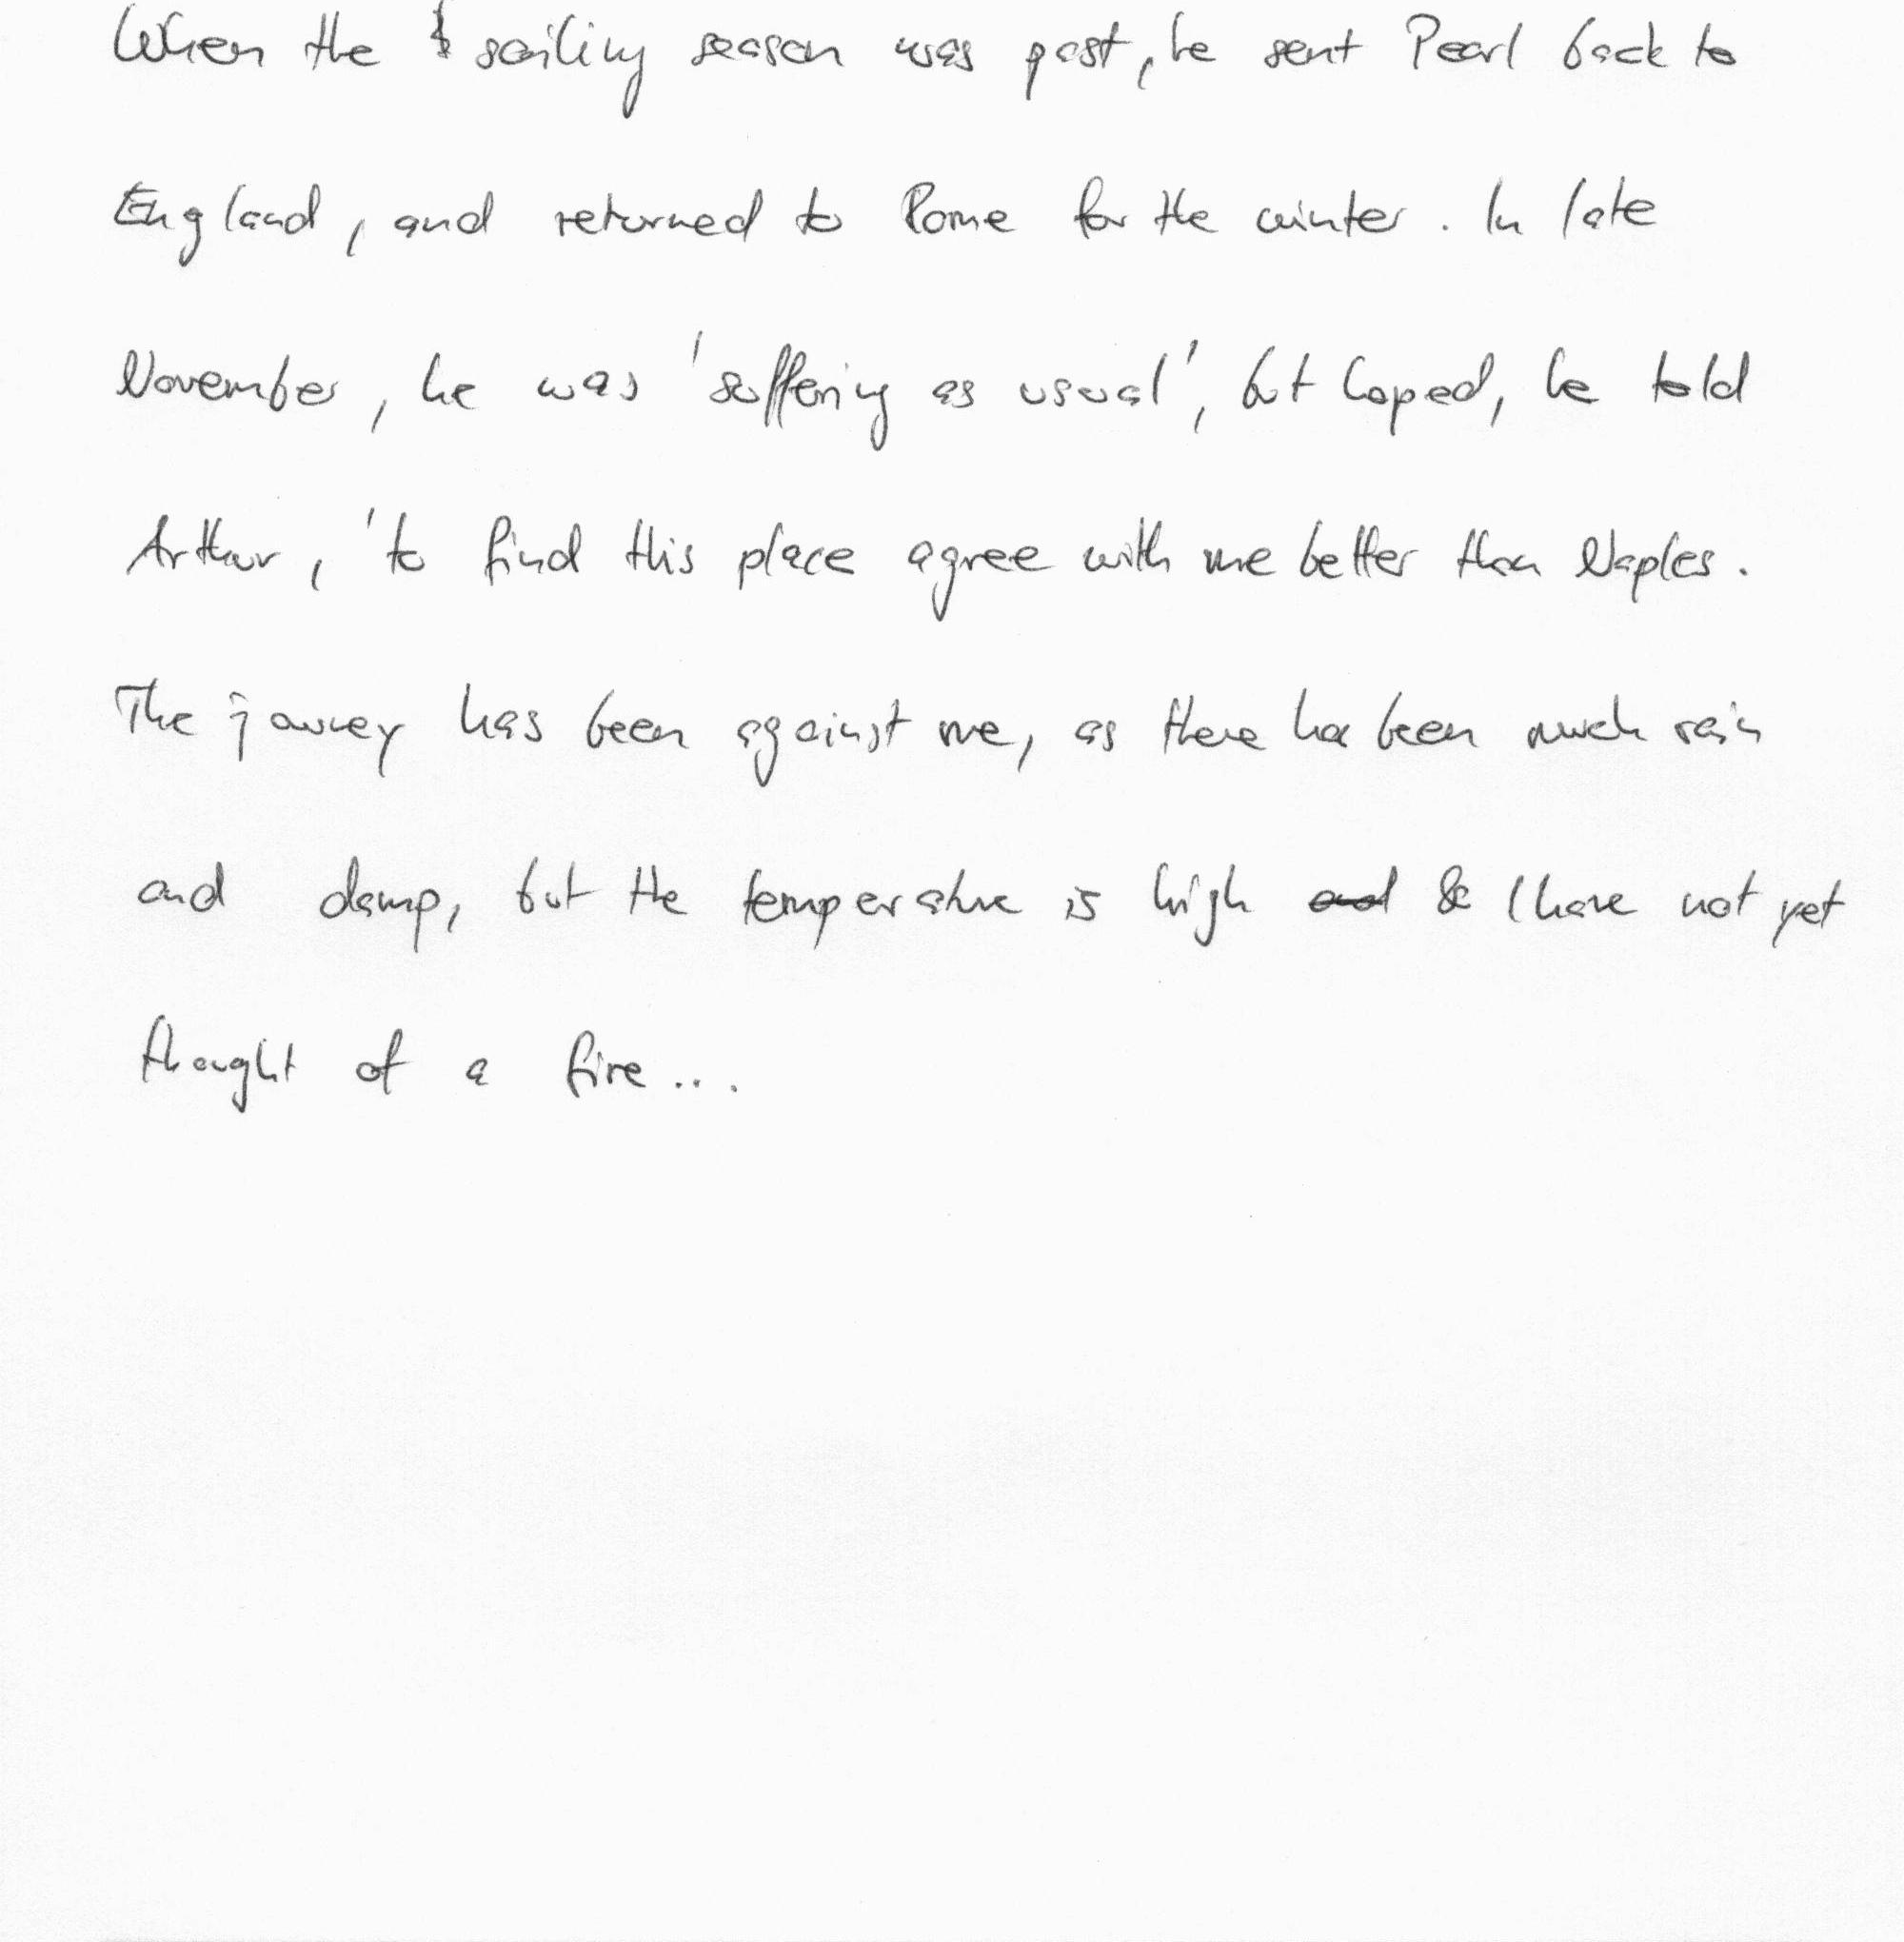 When the sailing season was past, he sent Pearl back to
England, and returned to Rome for the winter. In late
November, he was 'suffering as usual', but hoped, he told
Arthur, 'to find this place agree with me better than Naples.
The journey has been against me, as there has been much rain
and damp, but the temperature is high and & I have not yet
thought of a fire...